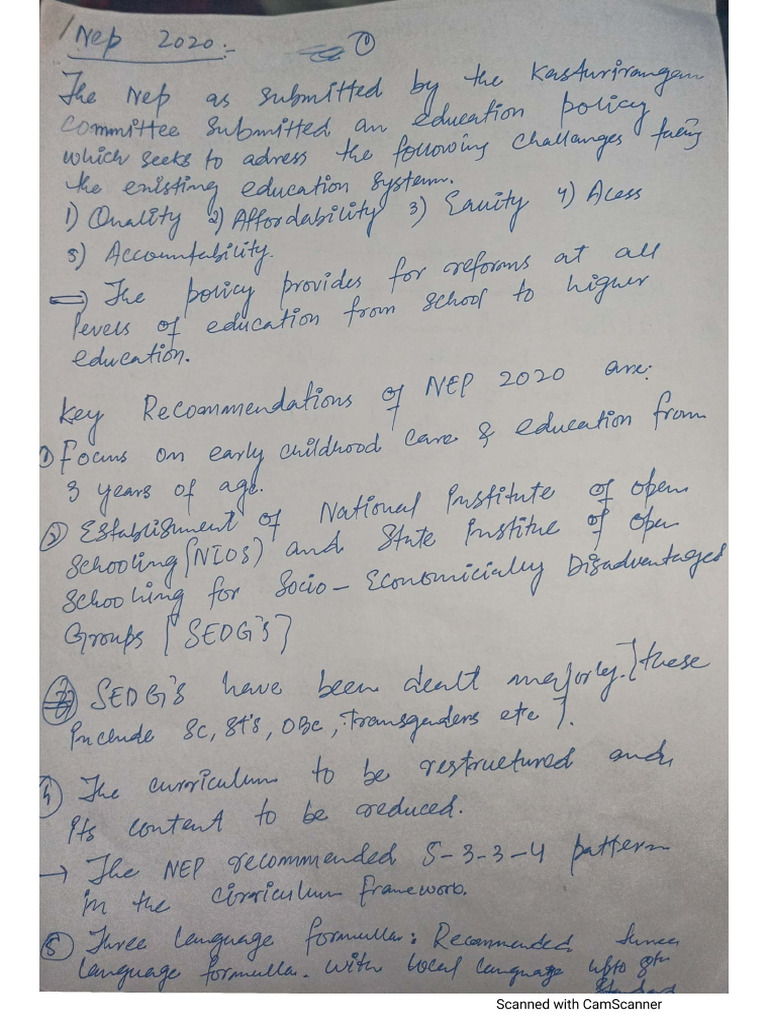 Nep 2020:- ①
The Nep as submitted by the Kasturirangan
committee submitted an education policy
which seeks to adress the following challanges facing
the existing education system.
1) Quality 2) Affordability 3) Equity 4) Acess
5) Accountability.
=> The policy provides for reforms at all
levels of education from school to higher
education.
Key Recommendations of NEP 2020 are:
① Focus on early childhood care & education from
3 years of age.
② Establishment of National Institute of open
schooling (NIOS) and State Institue of open
schooling for Socio-Economicially Disadvantaged
Groups [SEDG's]
③ SEDG's have been dealt majorly. [these
include SC, St's, OBC, Transgenders etc].
④ The curriculum to be restructured and
its content to be reduced.
→ The NEP recommended 5-3-3-4 pattern
in the curriculum framework.
⑤ Three language formulla: Recommended three
language formulla. with local language upto 8th
standard